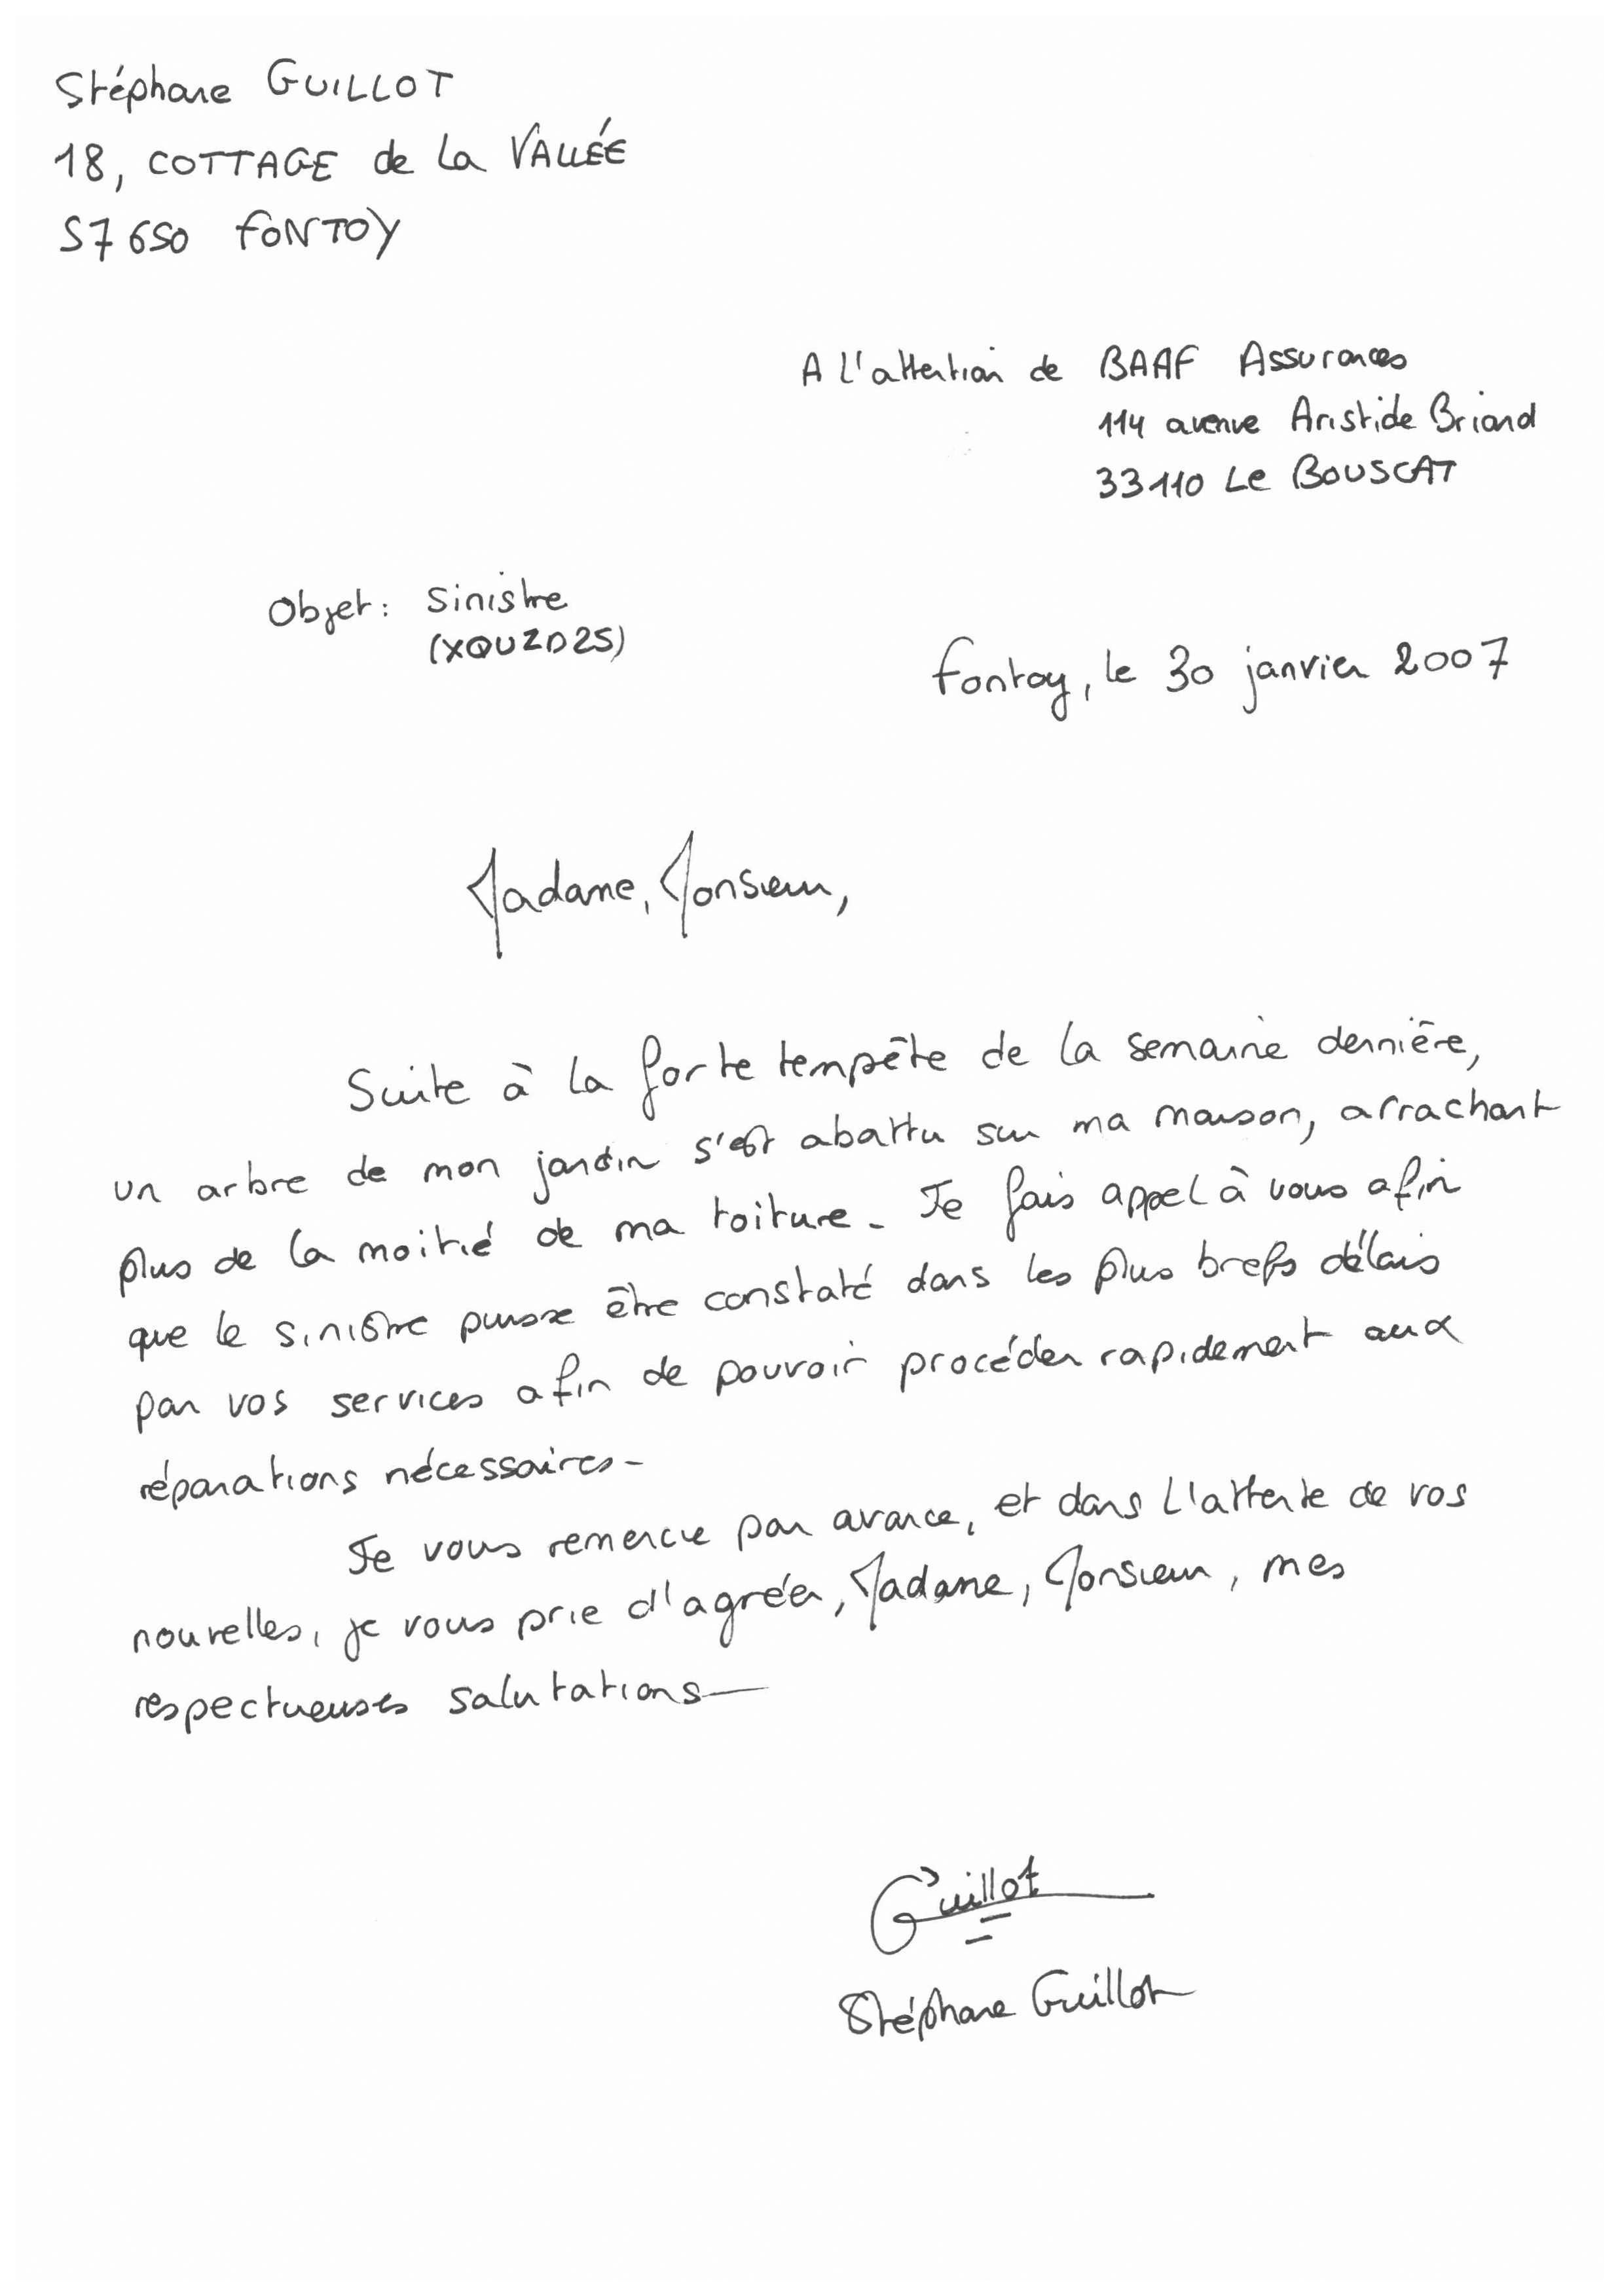 Stéphane GUILLOT
18, COTTAGE de la VALLÉE
57650 FONTOY
A l'attention de BAAF Assurances
114 avenue Aristide Briand
33110 Le BOUSCAT
Objet : Sinistre
(XQUZD25)
Fontoy, le 30 janvier 2007
Madame, Monsieur,
Suite à la forte tempête de la semaine dernière,
un arbre de mon jardin s'est abattu sur ma maison, arrachant
plus de la moitié de ma toiture. Je fais appel à vous afin
que le sinistre puisse être constaté dans les plus brefs délais
par vos services afin de pouvoir procéder rapidement aux
réparations nécessaires.
Je vous remercie par avance, et dans l'attente de vos
nouvelles, je vous prie d'agréer, Madame, Monsieur, mes
respectueuses salutations.
Guillot
Stéphane Guillot